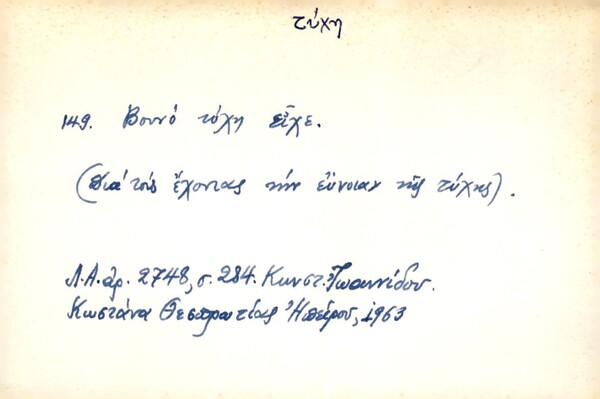 τύχη
149. Βουνό τύχη εἶχε.
(Διά τούς ἔχοντας τήν εὔνοιαν τῆς τύχης).
Λ.Α. ἀρ. 2748, σ. 284. Κωνστ. Ἰωαννίδου.
Κωστάνα Θεσπρωτίας Ἠπείρου, 1963